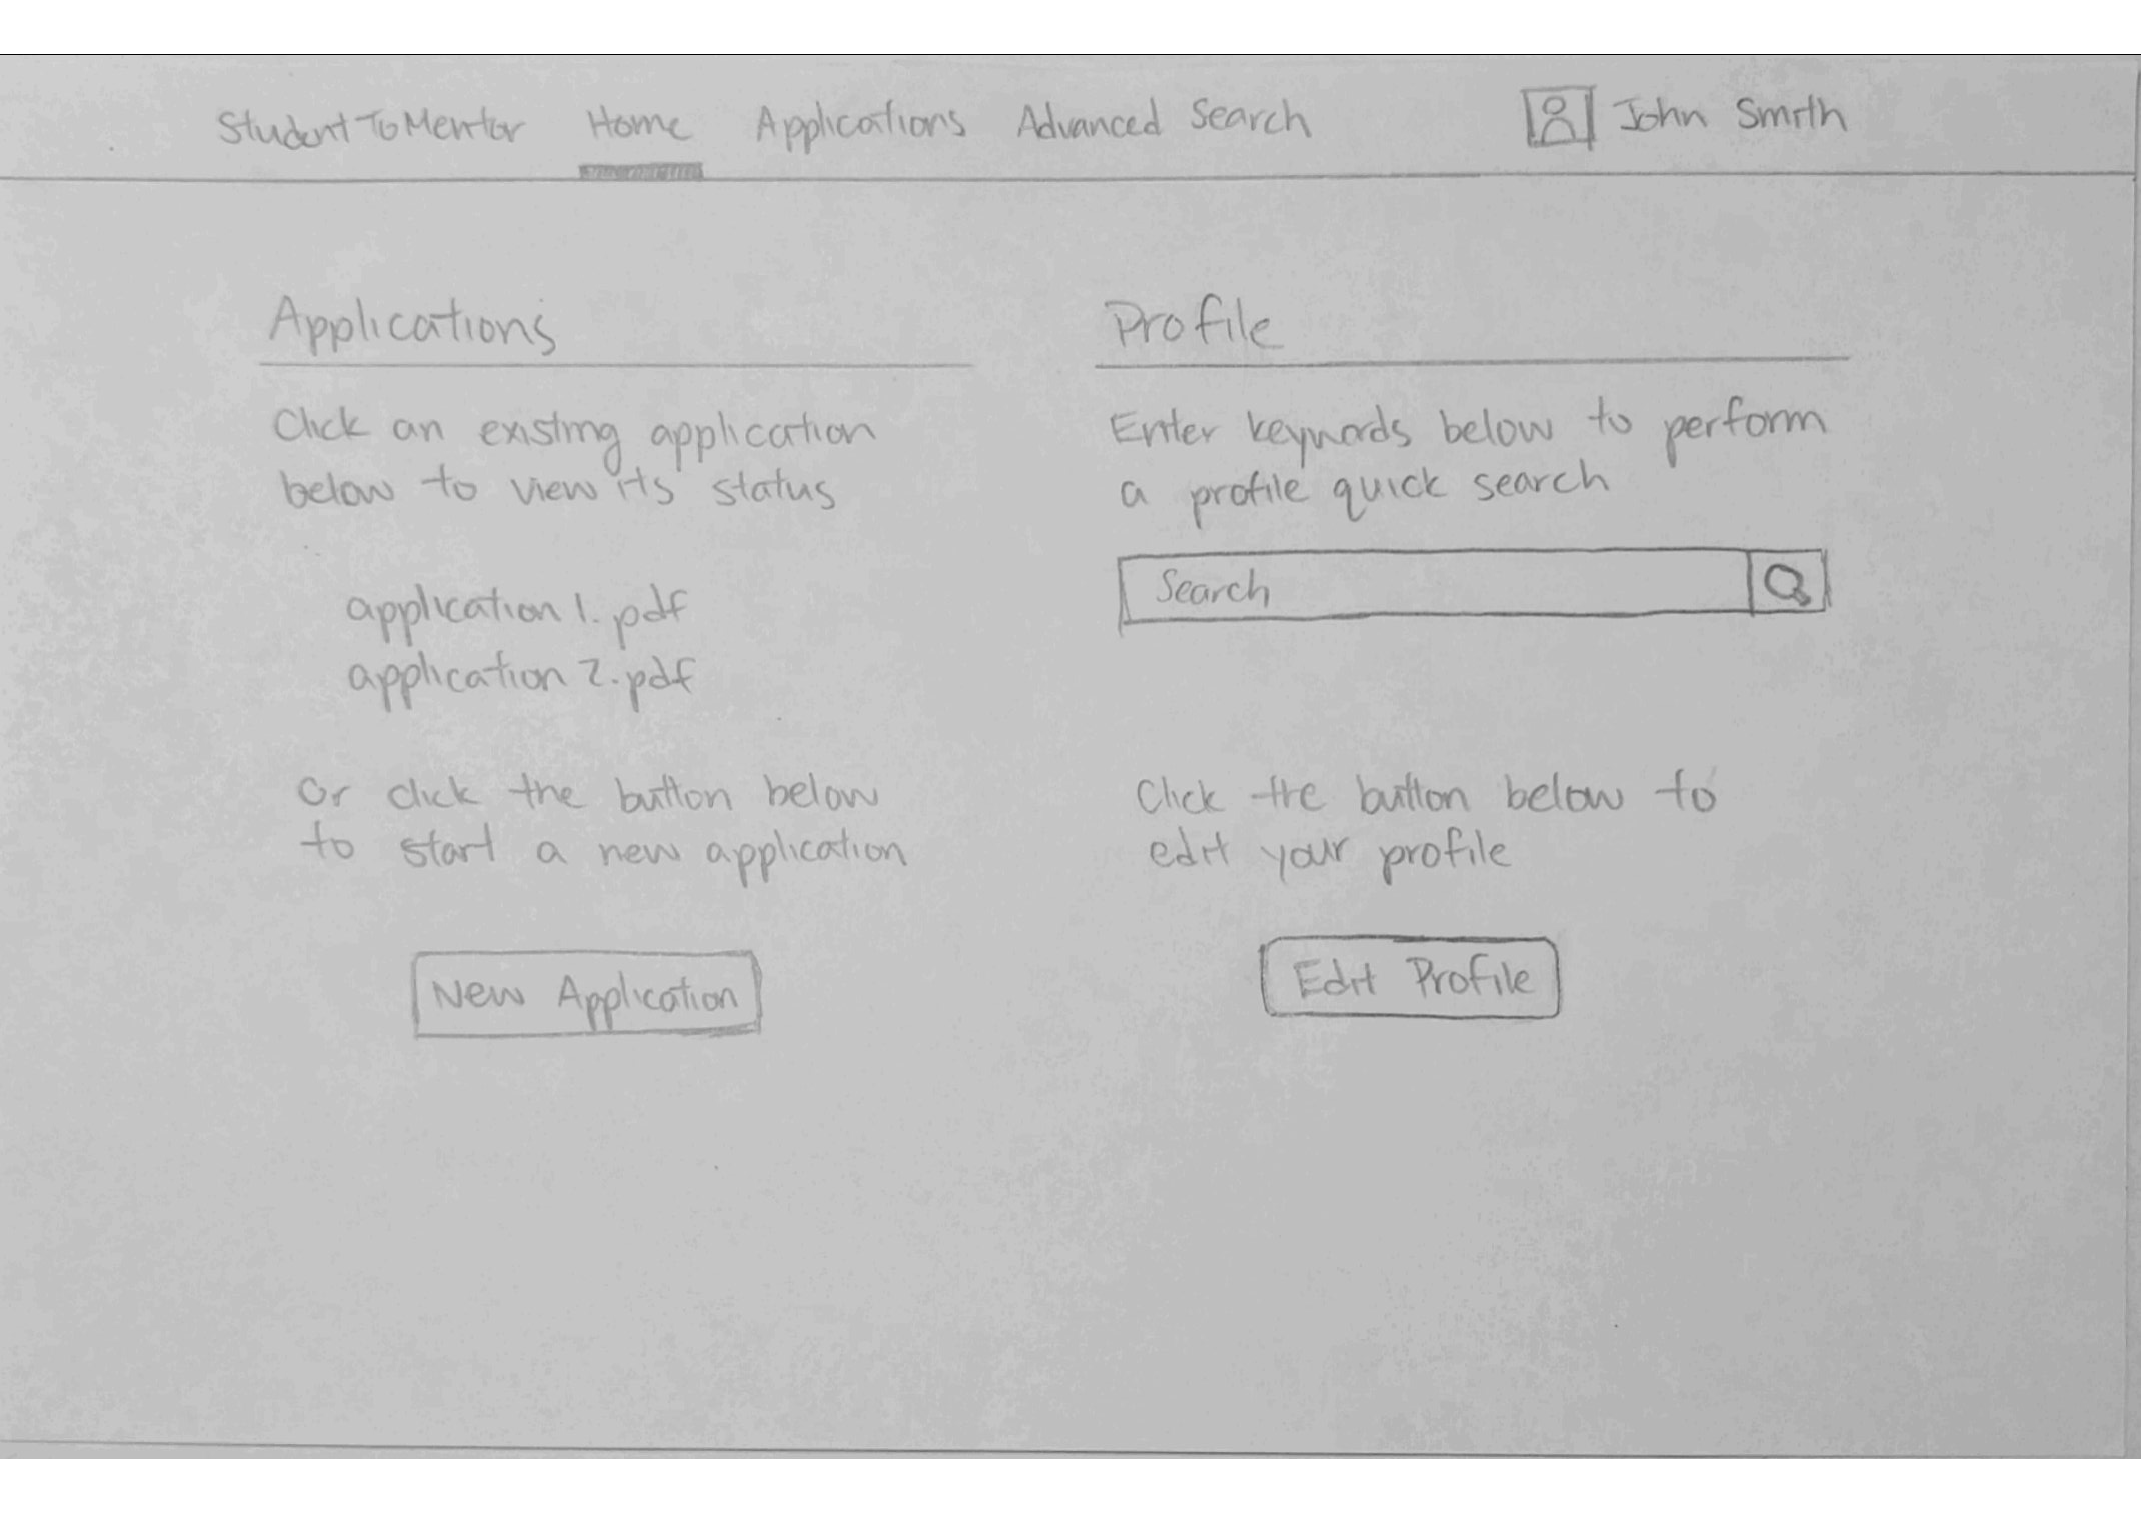 StudentToMentor Home Applications Advanced Search John Smith
Applications
Click an existing application
below to view its status
application 1.pdf
application 2.pdf
Or click the button below
to start a new application
New Application
Profile
Enter keywords below to perform
a profile quick search
Search
Click the button below to
edit your profile
Edit Profile